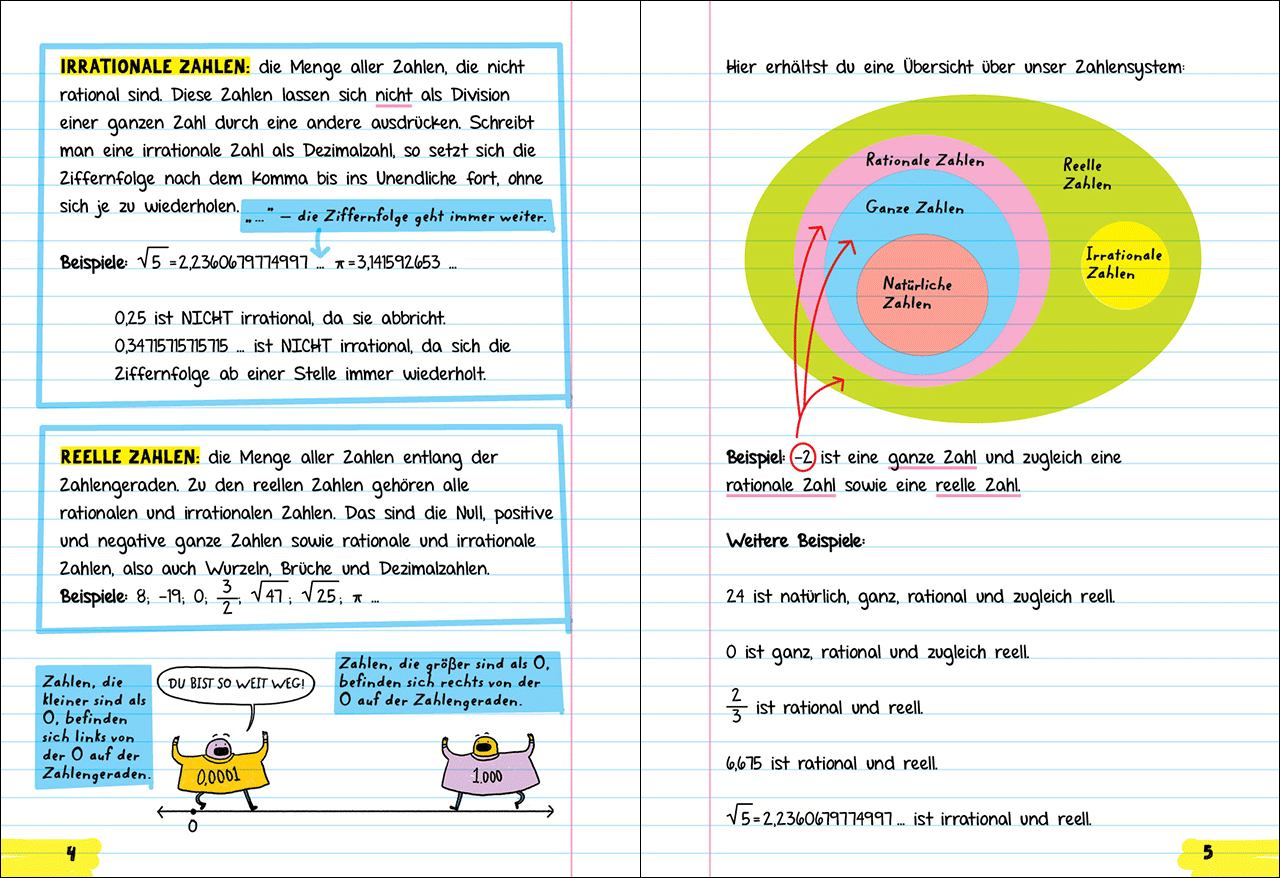 IRRATIONALE ZAHLEN: die Menge aller Zahlen, die nicht
rational sind. Diese Zahlen lassen sich nicht als Division
einer ganzen Zahl durch eine andere ausdrücken. Schreibt
man eine irrationale Zahl als Dezimalzahl, so setzt sich die
Ziffernfolge nach dem Komma bis ins Unendliche fort, ohne
sich je zu wiederholen.
„…" – die Ziffernfolge geht immer weiter.
Beispiele: √5 = 2,2360679774997 … π = 3,141592653 …
0,25 ist NICHT irrational, da sie abbricht.
0,3471571575715 … ist NICHT irrational, da sich die
Ziffernfolge ab einer Stelle immer wiederholt.
REELLE ZAHLEN: die Menge aller Zahlen entlang der
Zahlengeraden. Zu den reellen Zahlen gehören alle
rationalen und irrationalen Zahlen. Das sind die Null, positive
und negative ganze Zahlen sowie rationale und irrationale
Zahlen, also auch Wurzeln, Brüche und Dezimalzahlen.
Beispiele: 8; −19; 0; 3/2; √47; √25; π …
Zahlen, die
kleiner sind als
0, befinden
sich links von
der 0 auf der
Zahlengeraden.
DU BIST SO WEIT WEG!
Zahlen, die größer sind als 0,
befinden sich rechts von der
0 auf der Zahlengeraden.
0,0001
1.000
0
4
Hier erhältst du eine Übersicht über unser Zahlensystem:
Rationale Zahlen
Reelle
Zahlen
Ganze Zahlen
Irrationale
Zahlen
Natürliche
Zahlen
Beispiel: −2 ist eine ganze Zahl und zugleich eine
rationale Zahl sowie eine reelle Zahl.
Weitere Beispiele:
24 ist natürlich, ganz, rational und zugleich reell.
0 ist ganz, rational und zugleich reell.
2/3 ist rational und reell.
6,675 ist rational und reell.
√5 = 2,2360679774997 … ist irrational und reell.
5